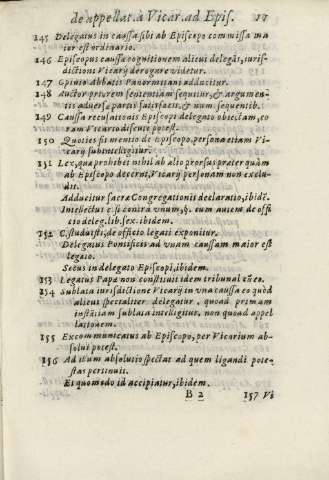 de appellat. à Vicar. ad Epis.
145 Delegatus in caussa sibi ab Episcopo commissa ma
ior est ordinario.
146 Episcopus caussæ cognitionem alicui delegãs, iuris-
dictioni Vicarij derogare videtur.
147 Opinio Abbatis Panormitani adducitur.
148 Auctor priorem sententiam sequitur, & argumen-
tis aduersæ partis satisfacit, & num. sequentib.
149 Caussa recusationis Episcopi delegato obiectam, co
ram Vicario discuti potest.
150 Quoties fit mentio de Episcopo, persona etiam Vi-
carij subintelligitur.
151 Lex, quæ prohibet nihil ab alio prorsus præterquàm
ab Episcopo decerni, Vicarij personam non exclu-
dit.
Adducitur sacræ Congregationis declaratio, ibidẽ.
Intellectus c. si contra vnum, §. cum autem de offi
cio deleg. lib. sex. ibidem.
152 C. studuisti, de officio legati exponitur.
Delegatus Pontificis ad vnam caussam maior est
legato.
Secus in delegato Episcopi, ibidem.
153 Legatus Papæ non constituit idem tribunal cũ eo.
154 Sublata iurisdictione Vicarij in vna caussa eo quòd
alicui specialiter delegatur, quoad primam
instãtiam sublata intelligitur, non quoad appel
lationem.
155 Excommunicatus ab Episcopo, per Vicarium ab-
solui potest.
156 Ad illum absolutio spectat ad quem ligandi pote-
stas pertinuit.
Et quomodo id accipiatur, ibidem.
B 2 157 Vi